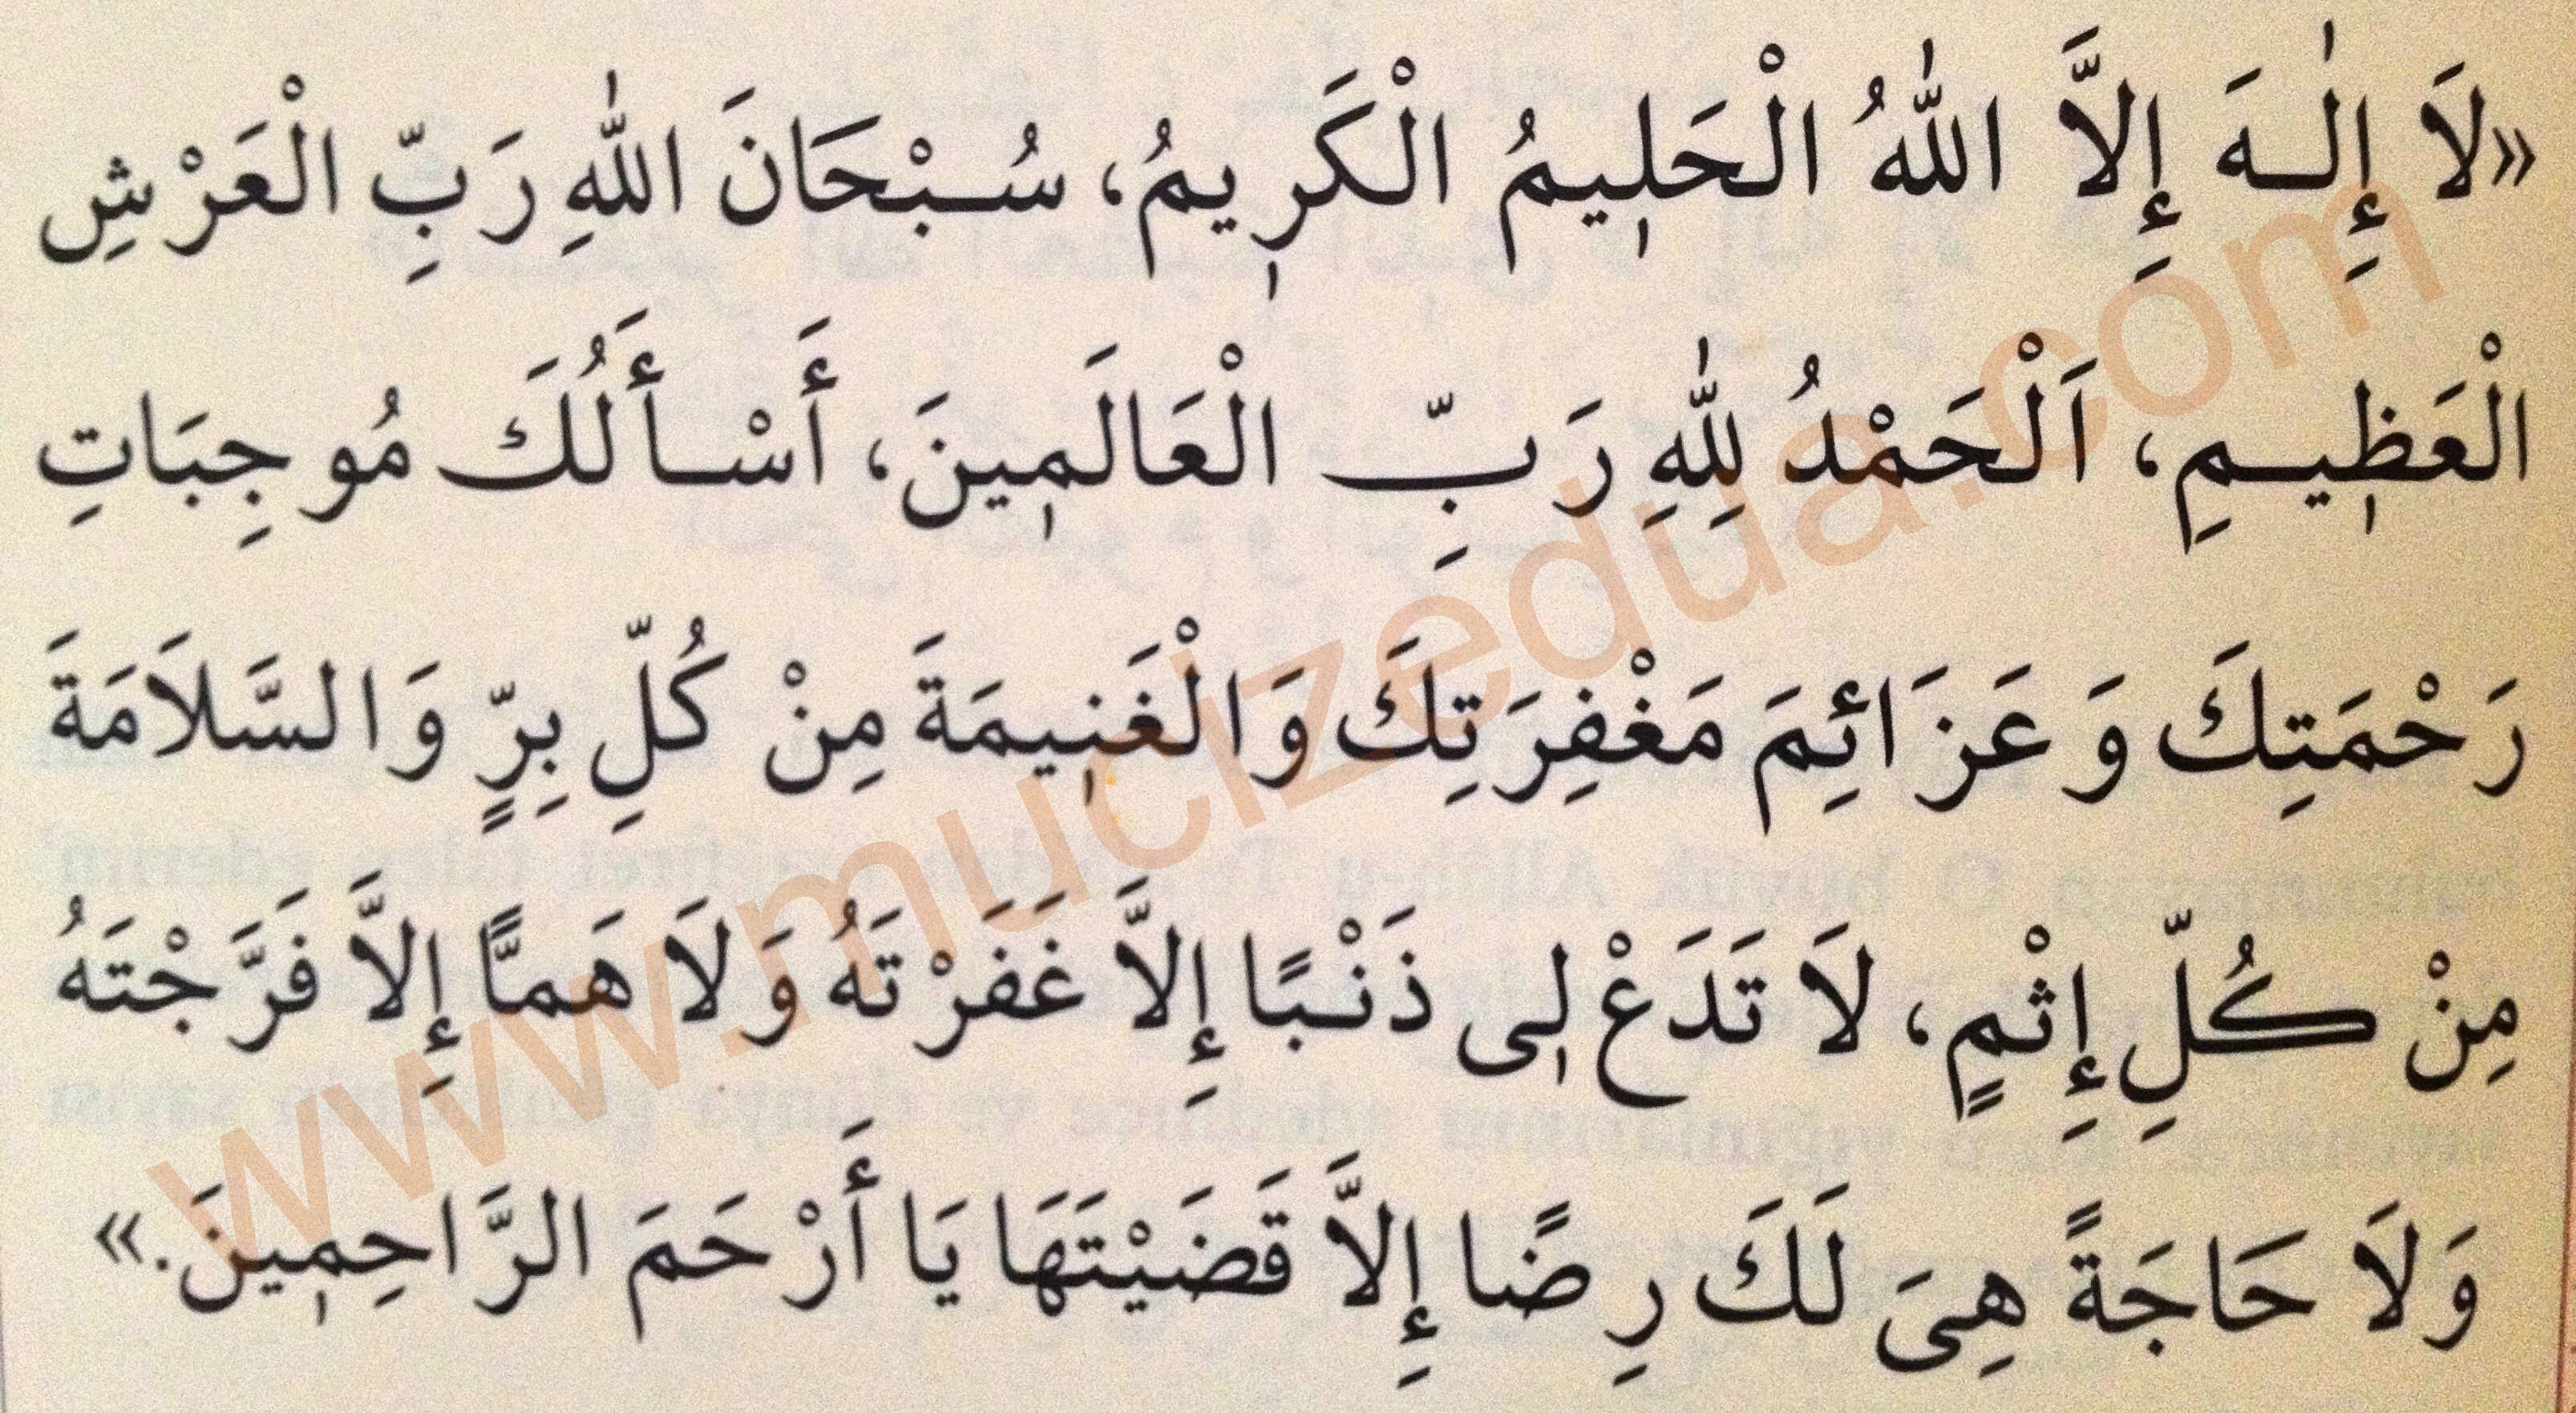 «لَا إِلٰـهَ إِلَّا اللّٰهُ الْحَلِيمُ الْكَرِيمُ، سُبْحَانَ اللّٰهِ رَبِّ الْعَرْشِ
الْعَظِيمِ، اَلْحَمْدُ لِلّٰهِ رَبِّ الْعَالَمِينَ، أَسْأَلُكَ مُوجِبَاتِ
رَحْمَتِكَ وَعَزَائِمَ مَغْفِرَتِكَ وَالْغَنِيمَةَ مِنْ كُلِّ بِرٍّ وَالسَّلَامَةَ
مِنْ كُلِّ إِثْمٍ، لَا تَدَعْ لِى ذَنْبًا إِلَّا غَفَرْتَهُ وَلَا هَمًّا إِلَّا فَرَّجْتَهُ
وَلَا حَاجَةً هِىَ لَكَ رِضًا إِلَّا قَضَيْتَهَا يَا أَرْحَمَ الرَّاحِمِينَ.»
www.mucizedua.com